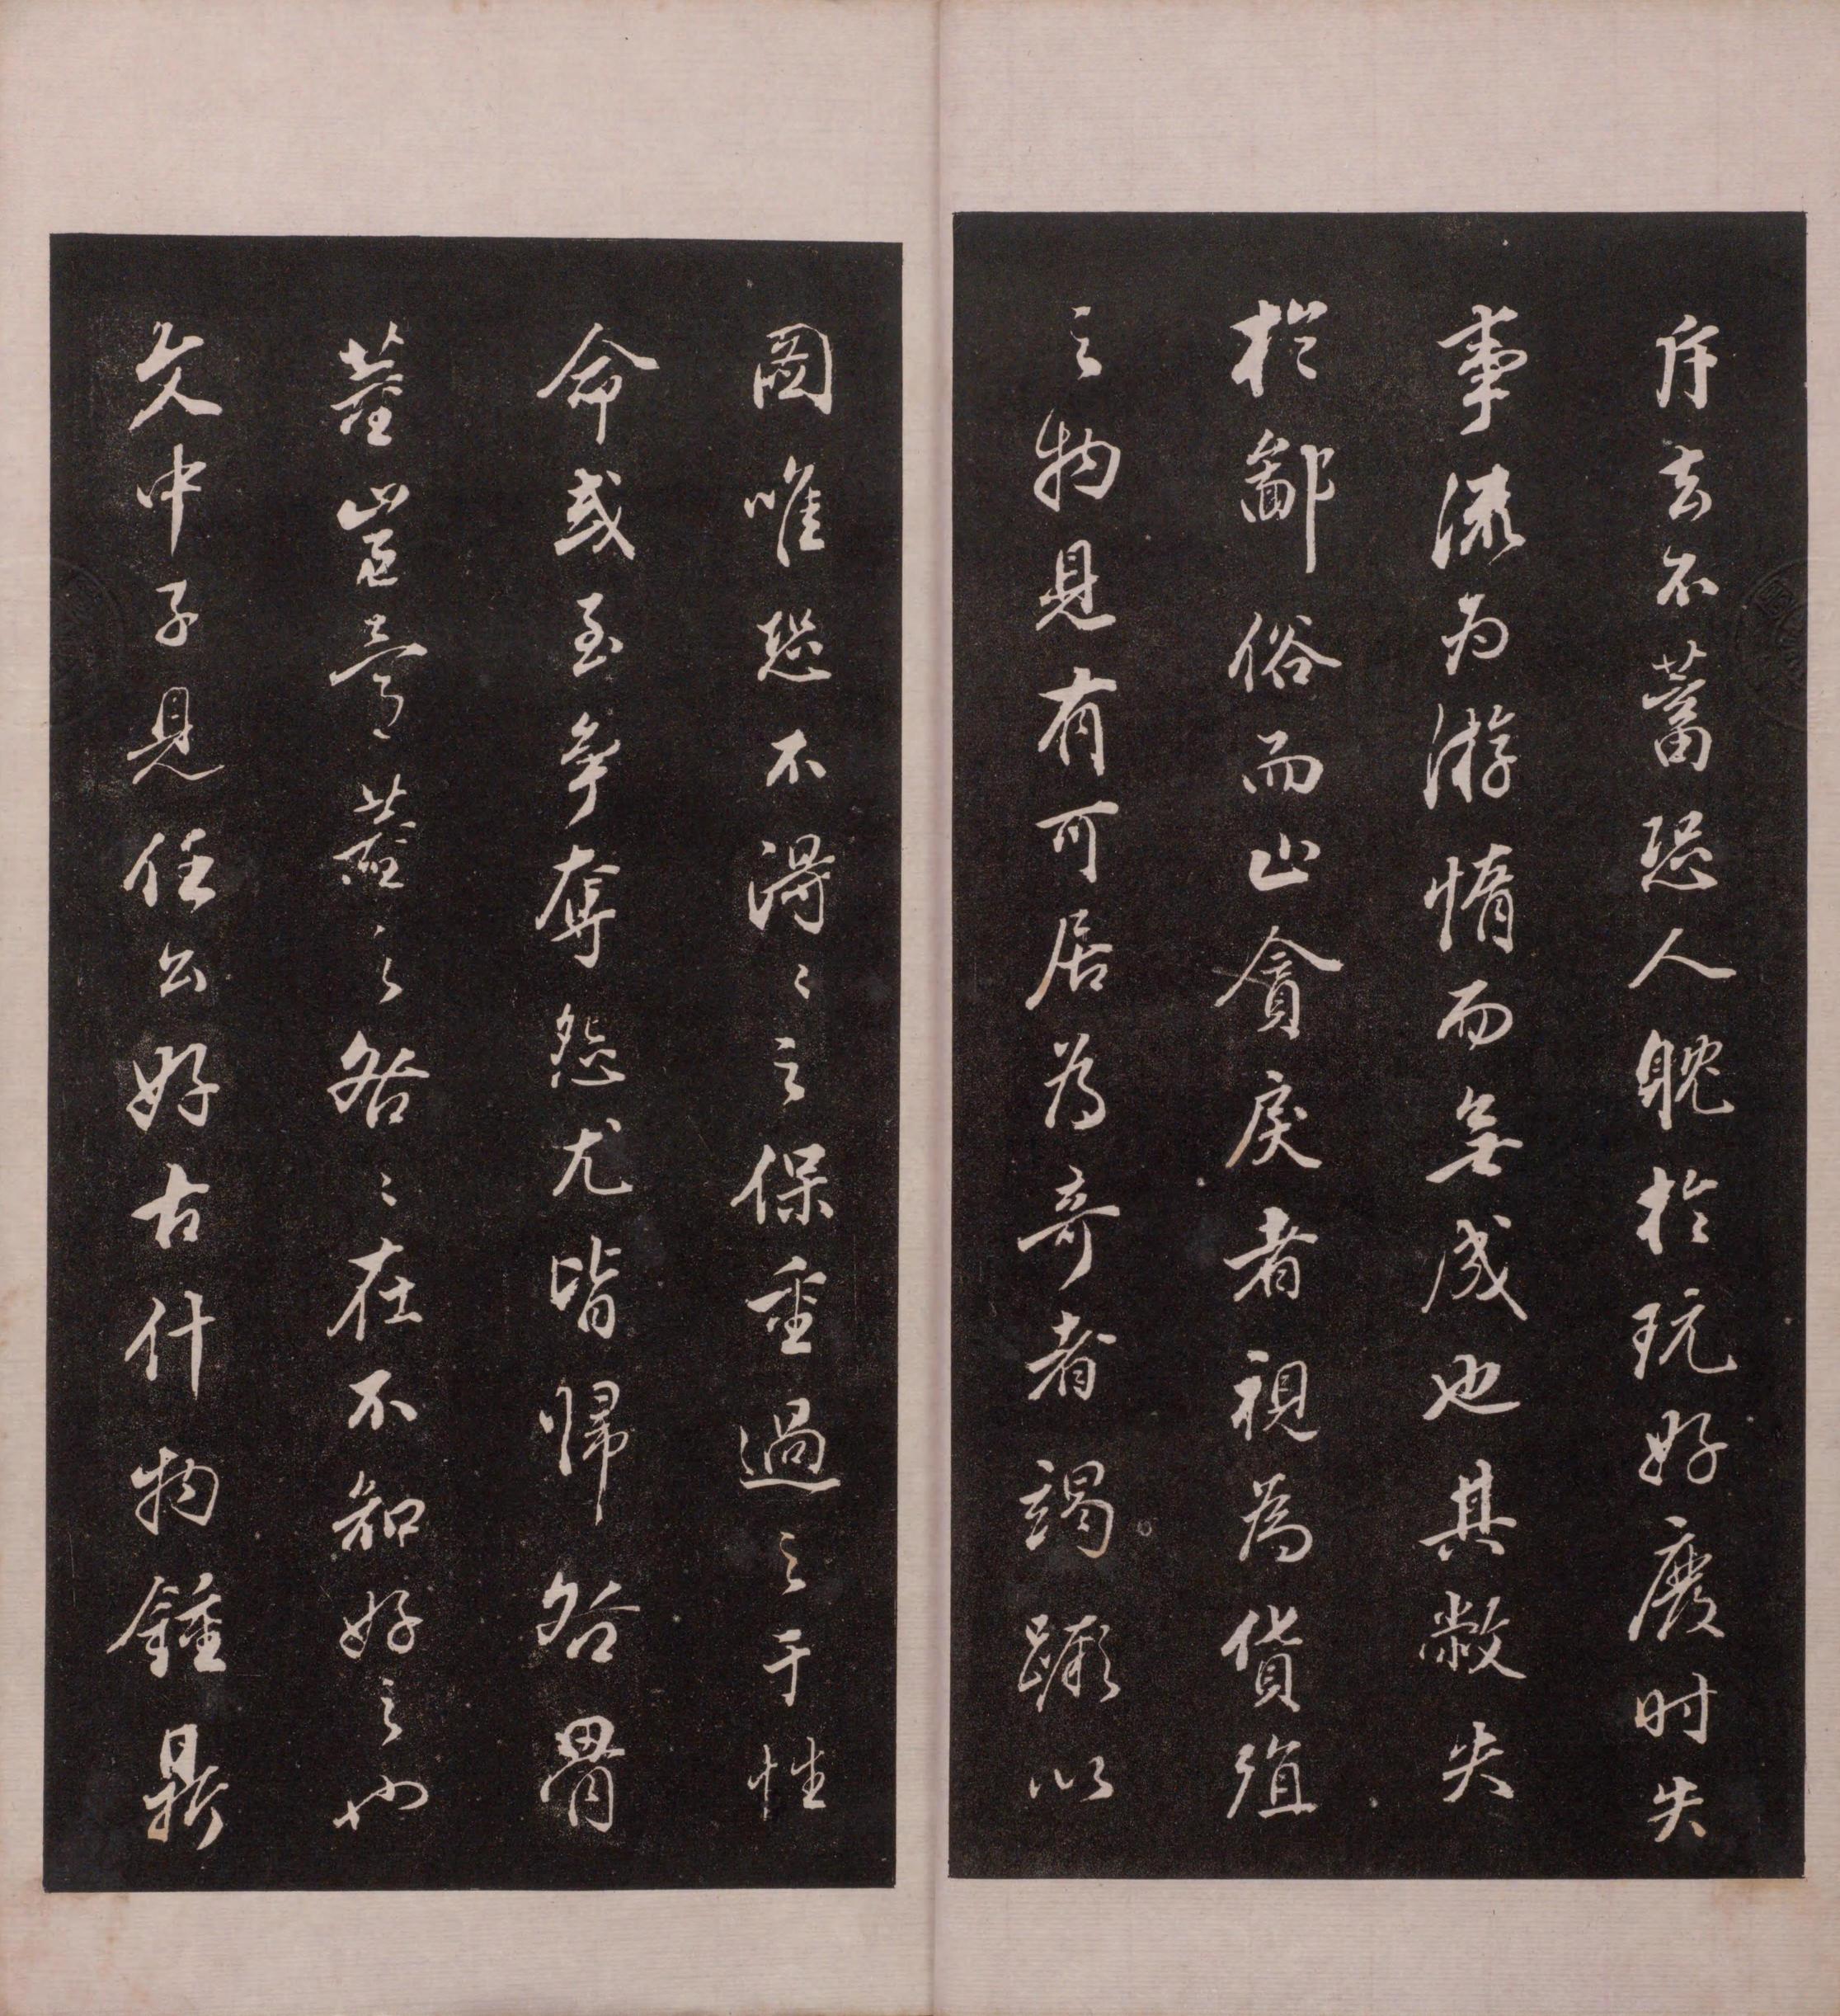 斥去不蓄恐人耽於玩好廢时失
事流为游惰而無成也其敝失
於鄙俗而止貪戾者視為貨殖
之物見有可居為奇者竭蹶以
圖唯恐不得〻之保重過之于性
命或至爭奪怨尤皆歸咎骨
董豈骨董之咎〻在不知好之也
文中子見任公好古什物鍾鼎